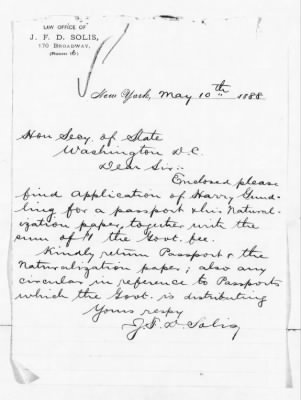 LAW OFFICE OF
J. F. D. SOLIS,
170 BROADWAY,
New York, May 10th 1888
Hon Secy of State
Washington D.C.
Dear Sir:
Enclosed please
find application of Harry Gund-
ling for a passport & his Natural-
ization paper, together with the
sum of $1 the Govt. fee.
Kindly return Passport & the
Naturalization paper; also any
circular in reference to Passports
which the Govt. is distributing
Yours respy
J. F. D. Solis